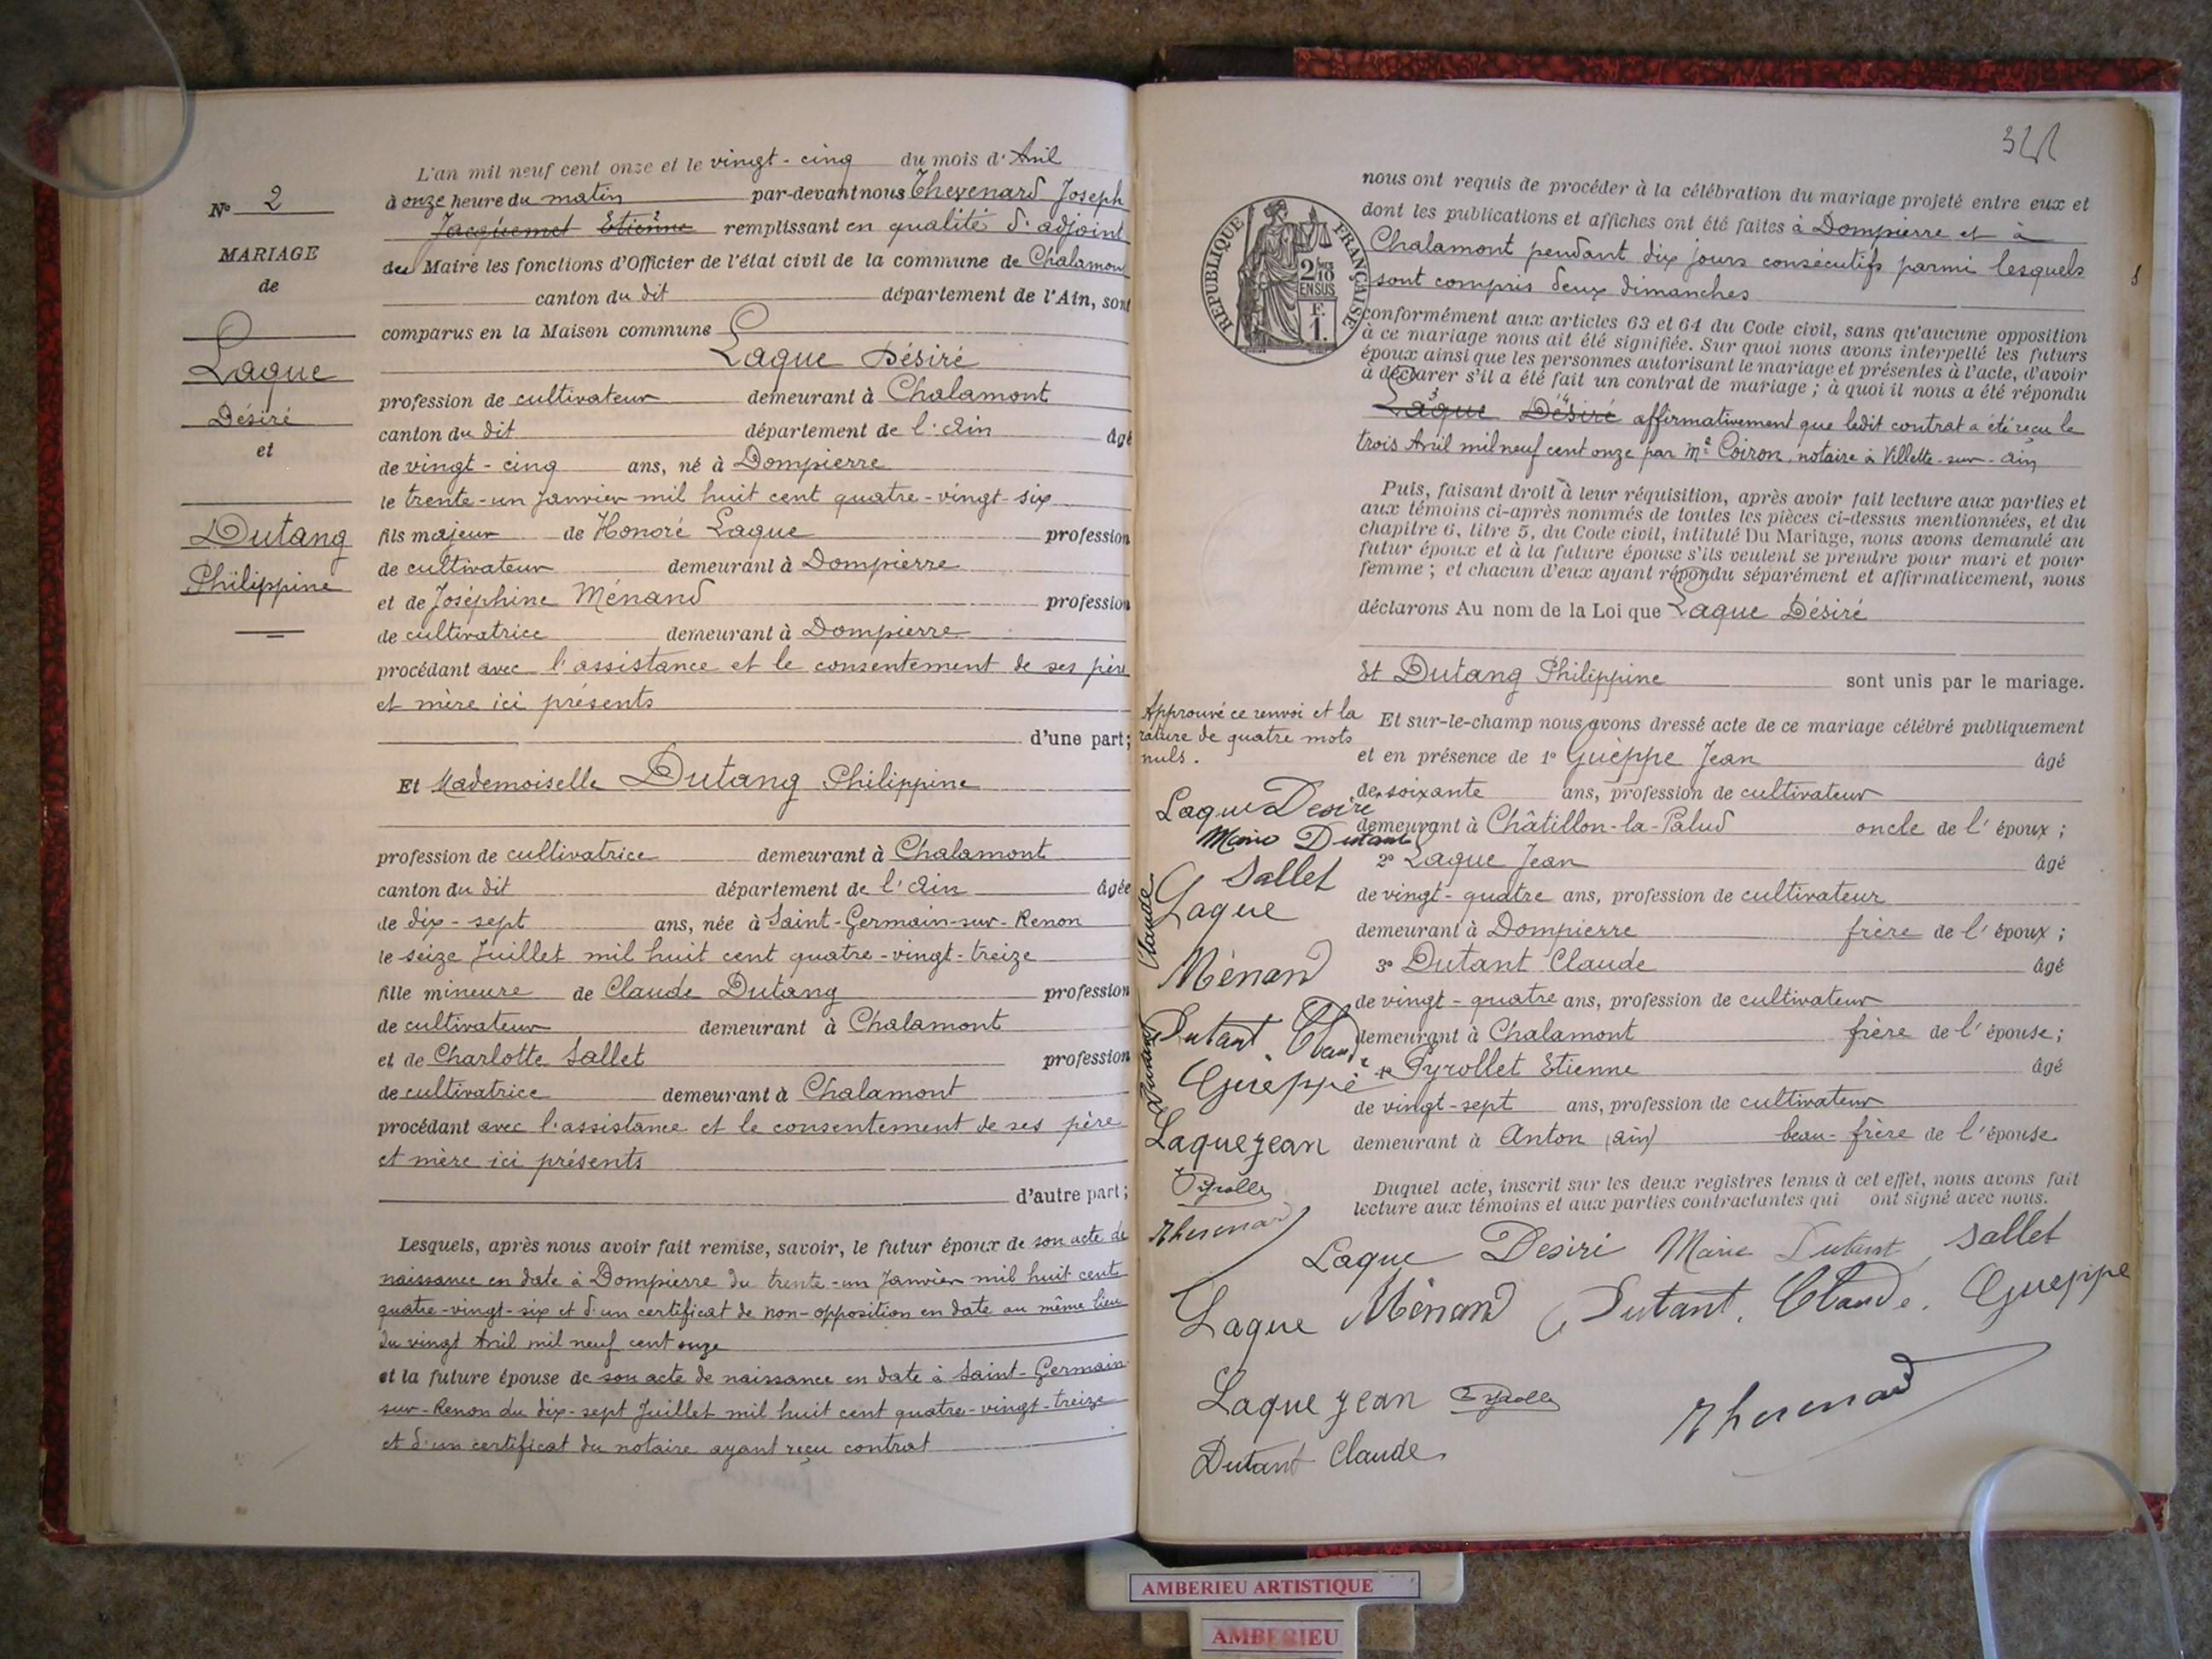 N° 2
MARIAGE
de
Laque
Désiré
et
Dutang
Philippine
L'an mil neuf cent onze et le vingt-cinq du mois d'Avril
à onze heure du matin par-devant nous Thevenard Joseph
Jacquemet Etienne remplissant en qualité d'adjoint
du Maire les fonctions d'Officier de l'état civil de la commune de Chalamont
canton du dit département de l'Ain, sont
comparus en la Maison commune
Laque Désiré
profession de cultivateur demeurant à Chalamont
canton du dit département de l'Ain âgé
de vingt-cinq ans, né à Dompierre
le trente-un Janvier mil huit cent quatre-vingt-six
fils majeur de Honoré Laque profession
de cultivateur demeurant à Dompierre
et de Joséphine Ménand profession
de cultivatrice demeurant à Dompierre
procédant avec l'assistance et le consentement de ses père
et mère ici présents
d'une part;
Et Mademoiselle Dutang Philippine
profession de cultivatrice demeurant à Chalamont
canton du dit département de l'Ain âgée
de dix-sept ans, née à Saint-Germain-sur-Renon
le seize Juillet mil huit cent quatre-vingt-treize
fille mineure de Claude Dutang profession
de cultivateur demeurant à Chalamont
et de Charlotte Sallet profession
de cultivatrice demeurant à Chalamont
procédant avec l'assistance et le consentement de ses père
et mère ici présents
d'autre part;
Lesquels, après nous avoir fait remise, savoir, le futur époux de son acte de
naissance en date à Dompierre du trente-un Janvier mil huit cent
quatre-vingt-six et d'un certificat de non-opposition en date au même lieu
du vingt Avril mil neuf cent onze
et la future épouse de son acte de naissance en date à Saint-Germain
sur-Renon du dix-sept Juillet mil huit cent quatre-vingt-treize
et d'un certificat du notaire ayant reçu contrat
RÉPUBLIQUE FRANÇAISE
2/10 EN SUS
F. 1.
nous ont requis de procéder à la célébration du mariage projeté entre eux et
dont les publications et affiches ont été faites à Dompierre et à
Chalamont pendant dix jours consécutifs parmi lesquels
sont compris deux dimanches
conformément aux articles 63 et 64 du Code civil, sans qu'aucune opposition
à ce mariage nous ait été signifiée. Sur quoi nous avons interpellé les futurs
époux ainsi que les personnes autorisant le mariage et présentes à l'acte, d'avoir
à déclarer s'il a été fait un contrat de mariage; à quoi il nous a été répondu
Laque Désiré affirmativement que ledit contrat a été reçu le
trois Avril mil neuf cent onze par Me Coiron, notaire à Villette-sur-Ain
Puis, faisant droit à leur réquisition, après avoir fait lecture aux parties et
aux témoins ci-après nommés de toutes les pièces ci-dessus mentionnées, et du
chapitre 6, titre 5, du Code civil, intitulé Du Mariage, nous avons demandé au
futur époux et à la future épouse s'ils veulent se prendre pour mari et pour
femme; et chacun d'eux ayant répondu séparément et affirmativement, nous
déclarons Au nom de la Loi que Laque Désiré
Et Dutang Philippine sont unis par le mariage.
Et sur-le-champ nous avons dressé acte de ce mariage célébré publiquement
et en présence de 1° Guéppe Jean âgé
de soixante ans, profession de cultivateur
demeurant à Châtillon-la-Palud oncle de l'époux;
2° Laque Jean âgé
de vingt-quatre ans, profession de cultivateur
demeurant à Dompierre frère de l'époux;
3° Dutant Claude âgé
de vingt-quatre ans, profession de cultivateur
demeurant à Chalamont frère de l'épouse;
4° Pyrollet Etienne âgé
de vingt-sept ans, profession de cultivateur
demeurant à Anton (Ain) beau-frère de l'épouse
Duquel acte, inscrit sur les deux registres tenus à cet effet, nous avons fait
lecture aux témoins et aux parties contractantes qui ont signé avec nous.
Approuvé ce renvoi et la
rature de quatre mots
nuls.
Laque Desiré
Marie Dutant
Sallet
Laque
Ménand
Dutant Claude
Gueppe
Dutant Claude
Laque jean
Pyrollet
Thevenard
Laque Desiré Marie Dutant Sallet
Laque Ménand Dutant Claude Gueppe
Laque jean Pyrollet
Thevenard
Dutant Claude
AMBERIEU ARTISTIQUE
AMBERIEU